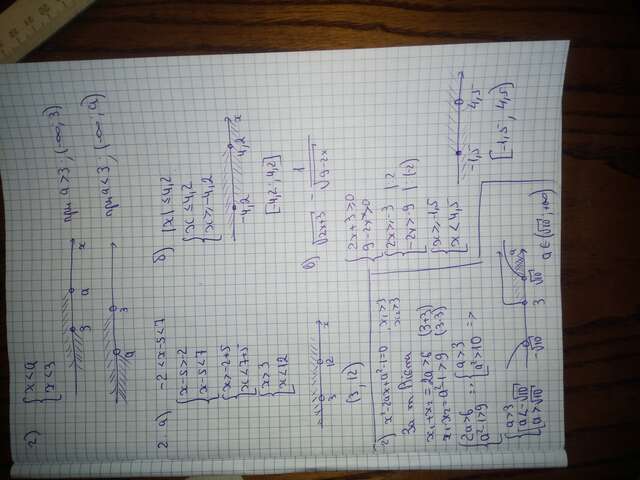 г) { x < a
{ x < 3
3 a x
при a > 3 ; (-∞; 3)
a 3
при a < 3 ; (-∞; a)
2. а) -2 < x-5 < 7
{ x-5 > -2
{ x-5 < 7
{ x > -2+5
{ x < 7+5
{ x > 3
{ x < 12
3 12 x
(3; 12)
б) |x| ≤ 4,2
{ x ≤ 4,2
{ x ≥ -4,2
-4,2 4,2 x
[4,2; 4,2]
в) √2x+3 - 1/√9-2x
{ 2x+3 ≥ 0
{ 9-2x > 0
{ 2x ≥ -3 | 2
{ -2x > -9 | (-2)
{ x ≥ -1,5
{ x < 4,5
-1,5 4,5
[-1,5; 4,5)
г) x²-2ax+a²-1=0 , x₁>3
x₂>3
За т. Виета
x₁+x₂=2a>6 (3+3)
x₁x₂=a²-1>9 (3·3)
{ 2a>6
{ a²-1>9 => { a>3
{ a²>10 =>
{ a>3
{ a<-√10
{ a>√10
√10 3 √10 a
a ∈ (√10; +∞)